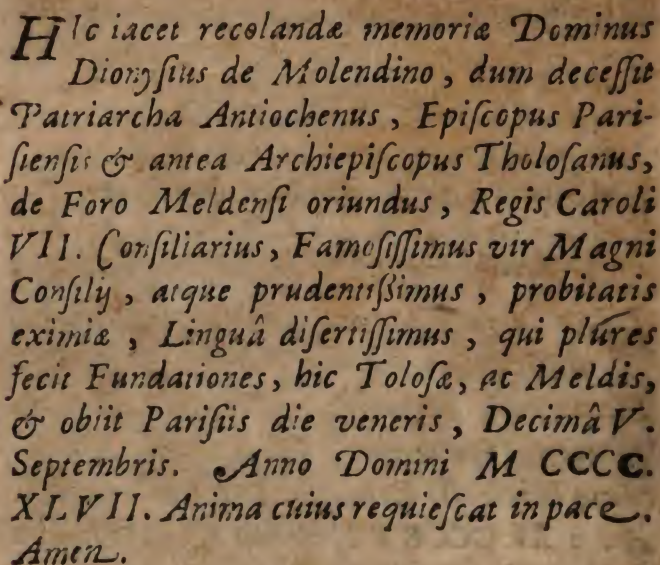 HIc iacet recolandæ memoriæ Dominus
Dionysius de Molendino, dum decessit
Patriarcha Antiochenus, Episcopus Pari-
siensis & antea Archiepiscopus Tholosanus,
de Foro Meldensi oriundus, Regis Caroli
VII. Consiliarius, Famosissimus vir Magni
Consilij, atque prudentißimus, probitatis
eximiæ, Linguâ disertissimus, qui plures
fecit Fundationes, hic Tolosæ, ac Meldis,
& obiit Parisiis die veneris, Decimâ V.
Septembris. Anno Domini M CCCC.
XLVII. Anima cuius requiescat in pace.
Amen.